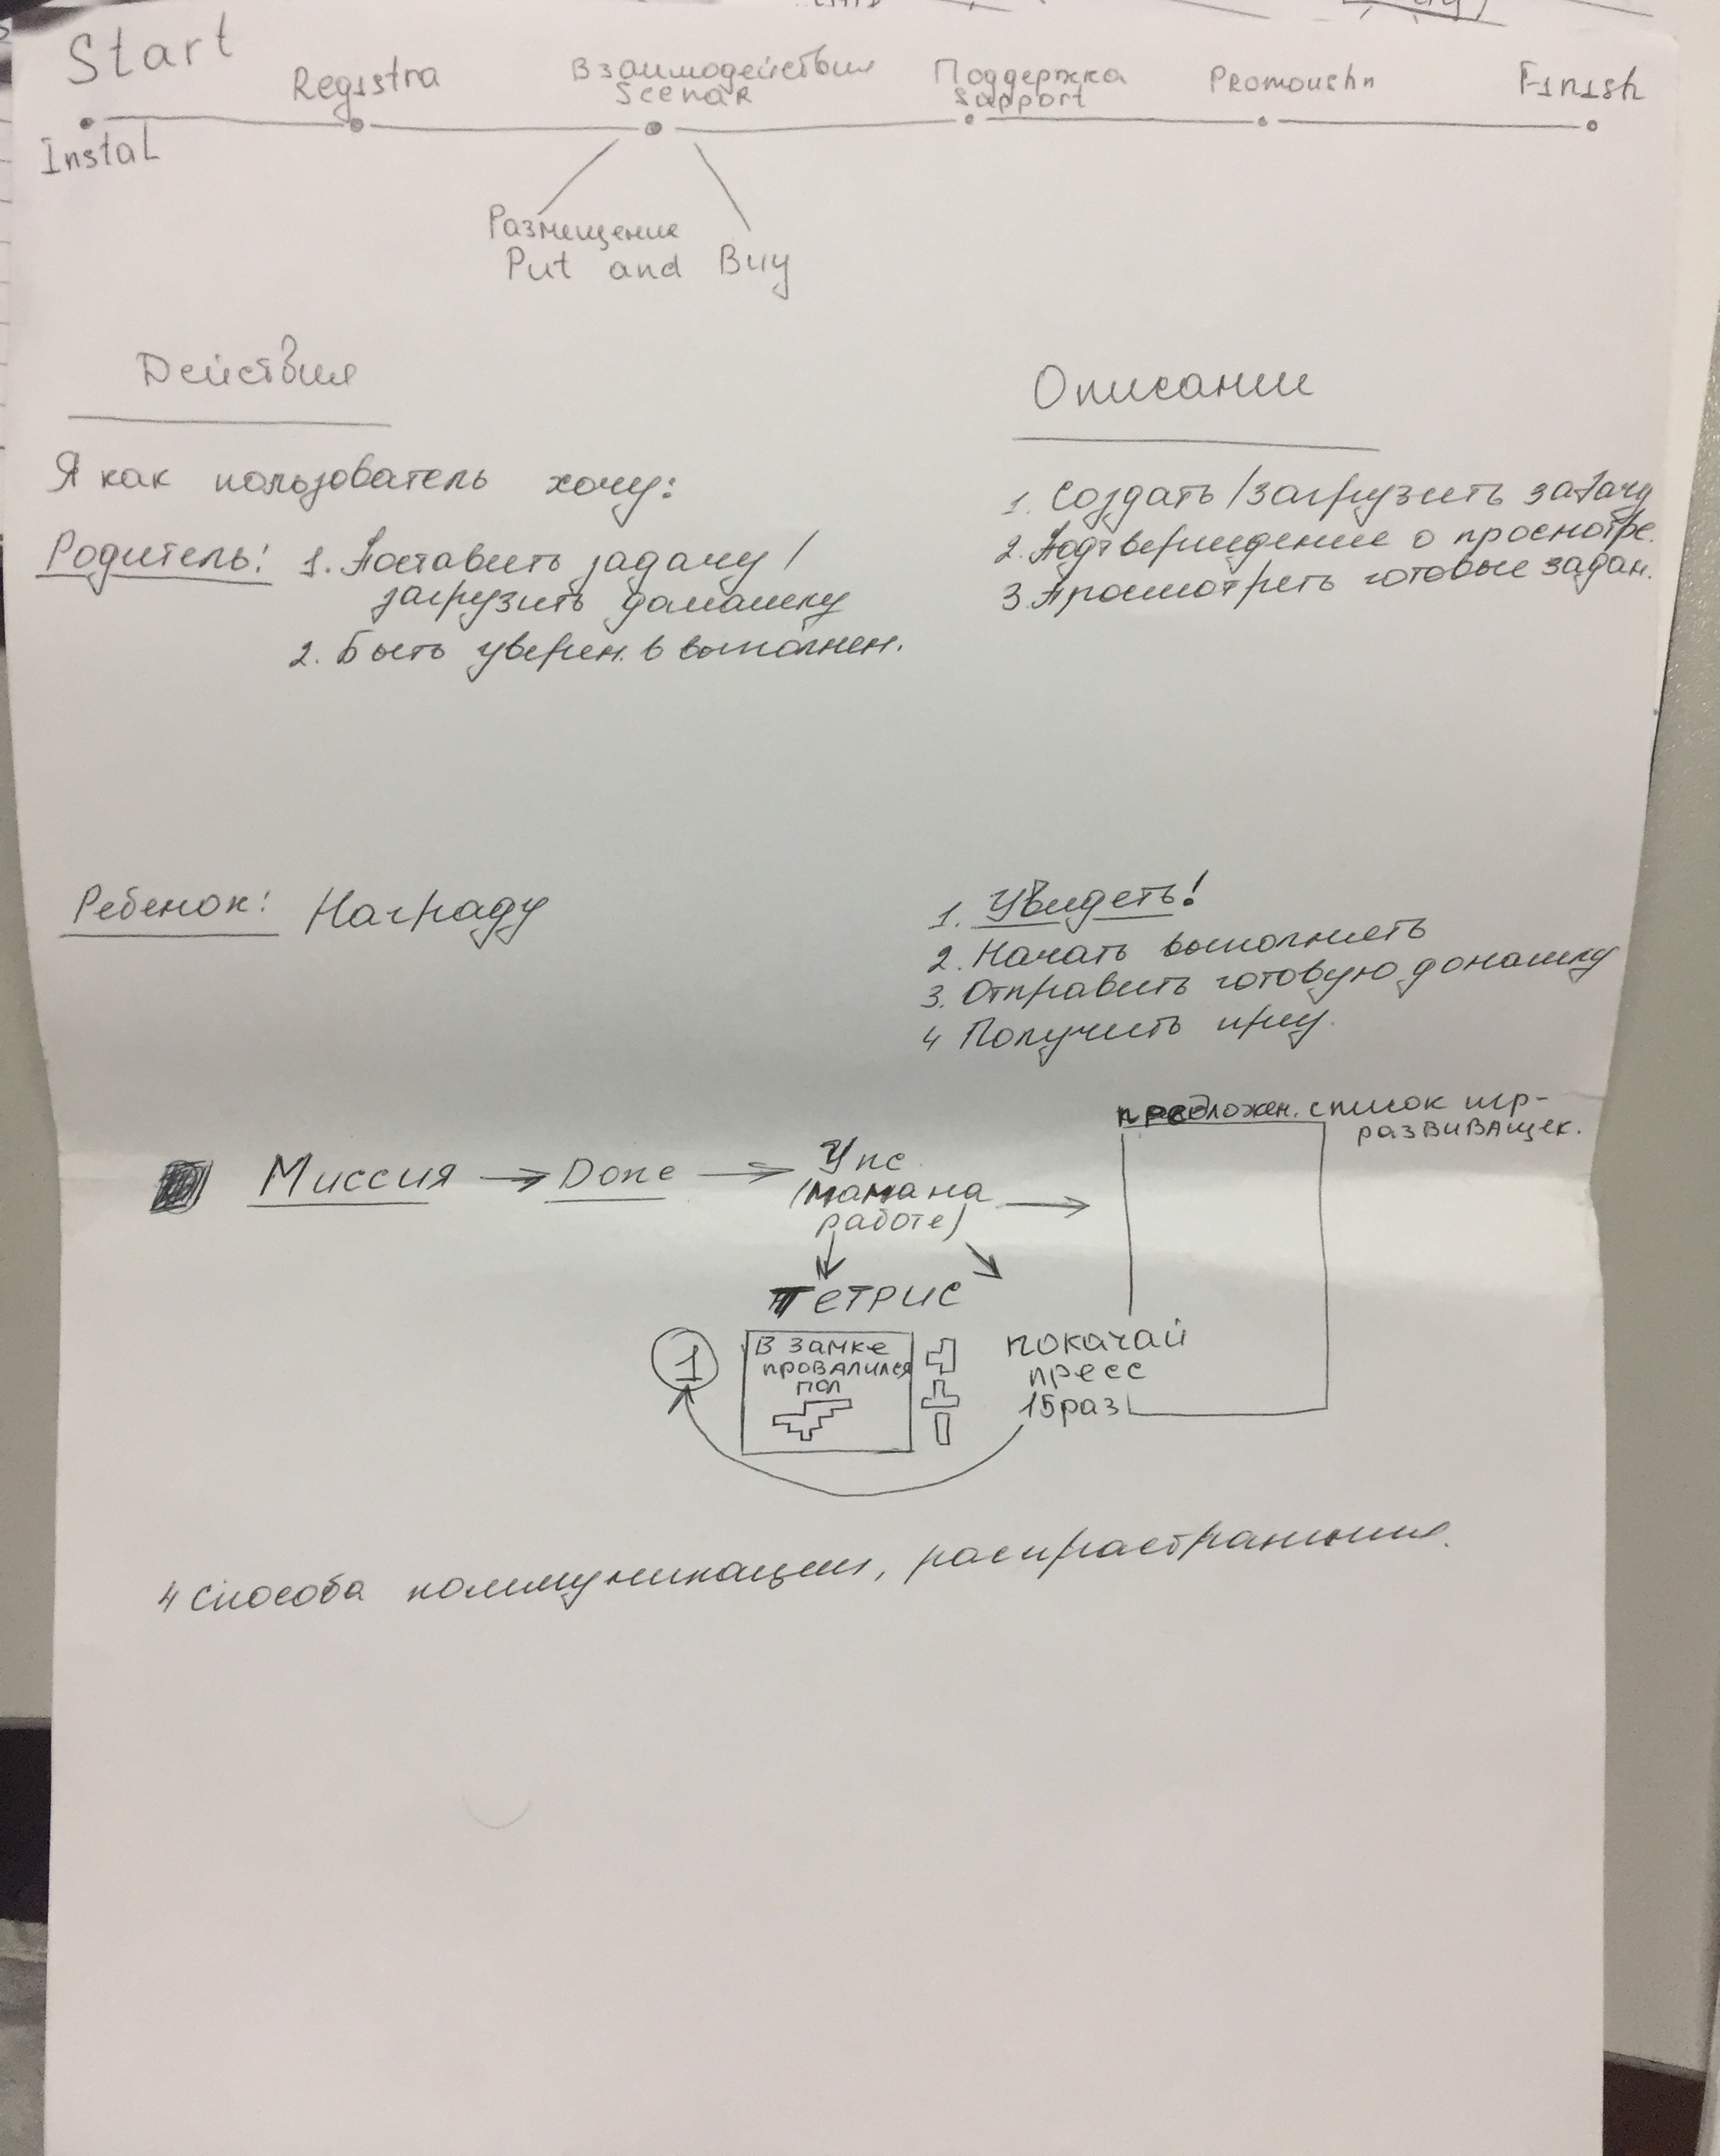 Start
Registra
Взаимодействия
Scenar
Поддержка
Support
Promoushn
Finish
Instal
Размещение
Put and Buy
Действия
Описание
Я как пользователь хочу:
Родитель: 1. Поставить задачу /
загрузить домашку
2. Быть уверен. в выполнен.
1. Создать / загрузить задачу
2. Подтверждение о просмотре.
3. Просмотреть готовые задан.
Ребенок: Награду
1. Увидеть!
2. Начать выполнять
3. Отправить готовую домашку
4 Получить
предложен. список игр-
развиващек.
Миссия → Done → Упс
(мама на
работе)
Тетрис
1
В замке
провалился
пол
покачай
пресс
15 раз
4 способа коммуникации, распространения.